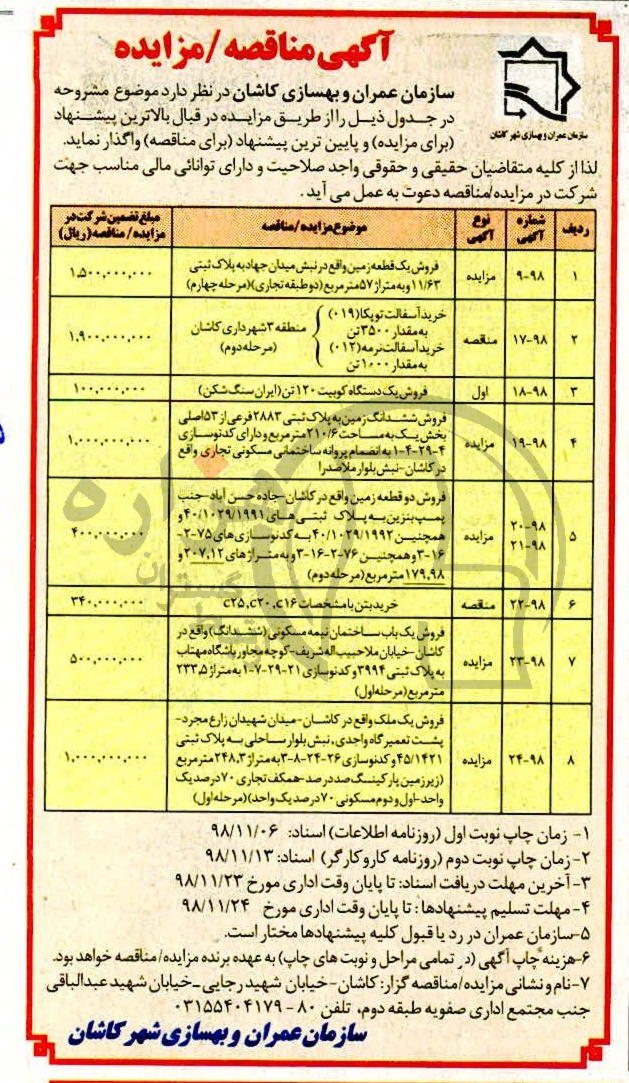 آگهی مناقصه/مزایده
سازمان عمران و بهسازی شهر کاشان
سازمان عمران و بهسازی کاشان در نظر دارد موضوع مشروحه
در جدول ذیل را از طریق مزایده در قبال بالاترین پیشنهاد
(برای مزایده) و پایین ترین پیشنهاد (برای مناقصه) واگذار نماید.
لذا از کلیه متقاضیان حقیقی و حقوقی واجد صلاحیت و دارای توانائی مالی مناسب جهت
شرکت در مزایده/مناقصه دعوت به عمل می آید.
ردیف شماره آگهی نوع آگهی موضوع مزایده/مناقصه مبلغ تضمین شرکت در مزایده/مناقصه (ریال)
۱ ۹-۹۸ مزایده فروش یک قطعه زمین واقع در نبش میدان جهاد به پلاک ثبتی
۱۱/۶۳ و به متراژ ۵۷ مترمربع (دو طبقه تجاری) (مرحله چهارم) ۱,۵۰۰,۰۰۰,۰۰۰
۲ ۱۷-۹۸ مناقصه خرید آسفالت توپکا (۰۱۹)
به مقدار ۳۵۰۰ تن
خرید آسفالت نرمه (۰۱۲)
به مقدار ۱۰۰۰ تن
منطقه ۳ شهرداری کاشان
(مرحله دوم) ۱,۹۰۰,۰۰۰,۰۰۰
۳ ۱۸-۹۸ اول فروش یک دستگاه کوبیت ۱۲۰ تن (ایران سنگ شکن) ۱۰۰,۰۰۰,۰۰۰
۴ ۱۹-۹۸ مزایده فروش ششدانگ زمین به پلاک ثبتی ۲۸۸۳ فرعی از ۵۳ اصلی
بخش یک به مساحت ۲۱۰/۶ مترمربع و دارای کد نوسازی
۱-۴-۲۹-۴ به انضمام پروانه ساختمانی مسکونی تجاری واقع
در کاشان-نبش بلوار ملاصدرا ۱,۰۰۰,۰۰۰,۰۰۰
۵ ۲۰-۹۸
۲۱-۹۸ مزایده فروش دو قطعه زمین واقع در کاشان-جاده حسن آباد-جنب
پمپ بنزین به پلاک ثبتی های ۴۰/۱۰۲۹/۱۹۹۱ و
همچنین ۴۰/۱۰۲۹/۱۹۹۲ به کد نوسازی های ۷۵-۲-
۱۶-۳ و همچنین ۷۶-۲-۱۶-۳ و به متراژهای ۲۰۷,۱۲ و
۱۷۹,۹۸ مترمربع (مرحله دوم) ۴۰۰,۰۰۰,۰۰۰
۶ ۲۲-۹۸ مناقصه خرید بتن با مشخصات c۲۵,c۲۰,c۱۶ ۳۴۰,۰۰۰,۰۰۰
۷ ۲۳-۹۸ مزایده فروش یک باب ساختمان نیمه مسکونی (ششدانگ) واقع در
کاشان-خیابان ملا حبیب اله شریف-کوچه مجاور باشگاه مهتاب
به پلاک ثبتی ۳۹۹۴ و کد نوسازی ۲۱-۲۹-۷-۱ به متراژ ۲۳۳,۵
مترمربع (مرحله اول) ۵۰۰,۰۰۰,۰۰۰
۸ ۲۴-۹۸ مزایده فروش یک ملک واقع در کاشان-میدان شهیدان زارع مجرد-
پشت تعمیرگاه واحدی، نبش بلوار ساحلی به پلاک ثبتی
۴۵/۱۴۲۱ و کد نوسازی ۲۶-۲۴-۸-۳ به متراژ ۲۴۸,۳ مترمربع
(زیرزمین پارکینگ صد در صد-همکف تجاری ۷۰ درصد یک
واحد-اول و دوم مسکونی ۷۰ درصد یک واحد) (مرحله اول) ۱,۰۰۰,۰۰۰,۰۰۰
۱- زمان چاپ نوبت اول (روزنامه اطلاعات) اسناد: ۹۸/۱۱/۰۶
۲-زمان چاپ نوبت دوم (روزنامه کار و کارگر) اسناد: ۹۸/۱۱/۱۳
۳-آخرین مهلت دریافت اسناد: تا پایان وقت اداری مورخ ۹۸/۱۱/۲۳
۴-مهلت تسلیم پیشنهادها: تا پایان وقت اداری مورخ ۹۸/۱۱/۲۴
۵-سازمان عمران در رد یا قبول کلیه پیشنهادها مختار است.
۶-هزینه چاپ آگهی (در تمامی مراحل و نوبت های چاپ) به عهده برنده مزایده/مناقصه خواهد بود.
۷-نام و نشانی مزایده/مناقصه گزار: کاشان-خیابان شهید رجایی-خیابان شهید عبدالباقی
جنب مجتمع اداری صفویه طبقه دوم، تلفن ۸۰-۰۳۱۵۵۴۰۴۱۷۹
سازمان عمران و بهسازی شهر کاشان